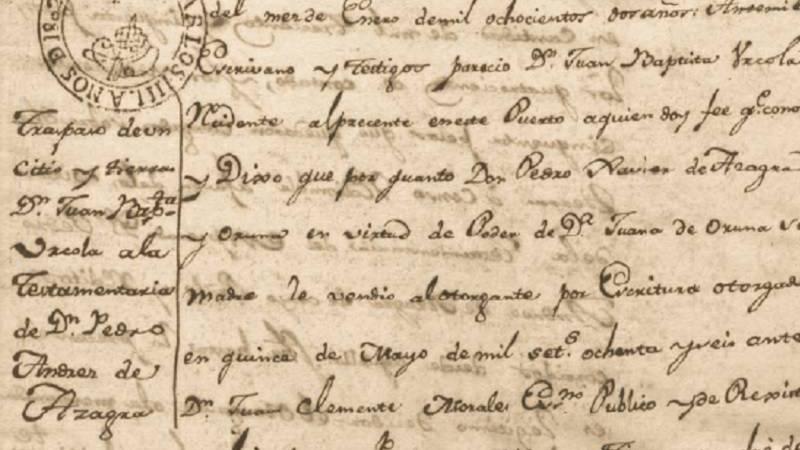 del mes de Enero de mil ochocientos dos años: Antemi e
Escrivano y Testigos parecio Dn. Juan Baptista Vrcola
Recidente al precente en este Puerto a quien doy fee qe. cono
y Dixo que por quanto Don Pedro Xavier de Azagra
y Oruna en virtud de Poder de Da. Juana de Oruna
madre le vendio al otorgante por Escritura otorgad
en quince de Mayo de mil sets. ochenta y seis ante
Dn. Juan Clemente Morales Esno. Publico y de Rexis
Traspaso de un
Citio y tierras
Dn. Juan Bapta.
Vrcola a la
Testamentaria
de Dn. Pedro
Andres de
Azagra
CARLOS III. AÑOS DE